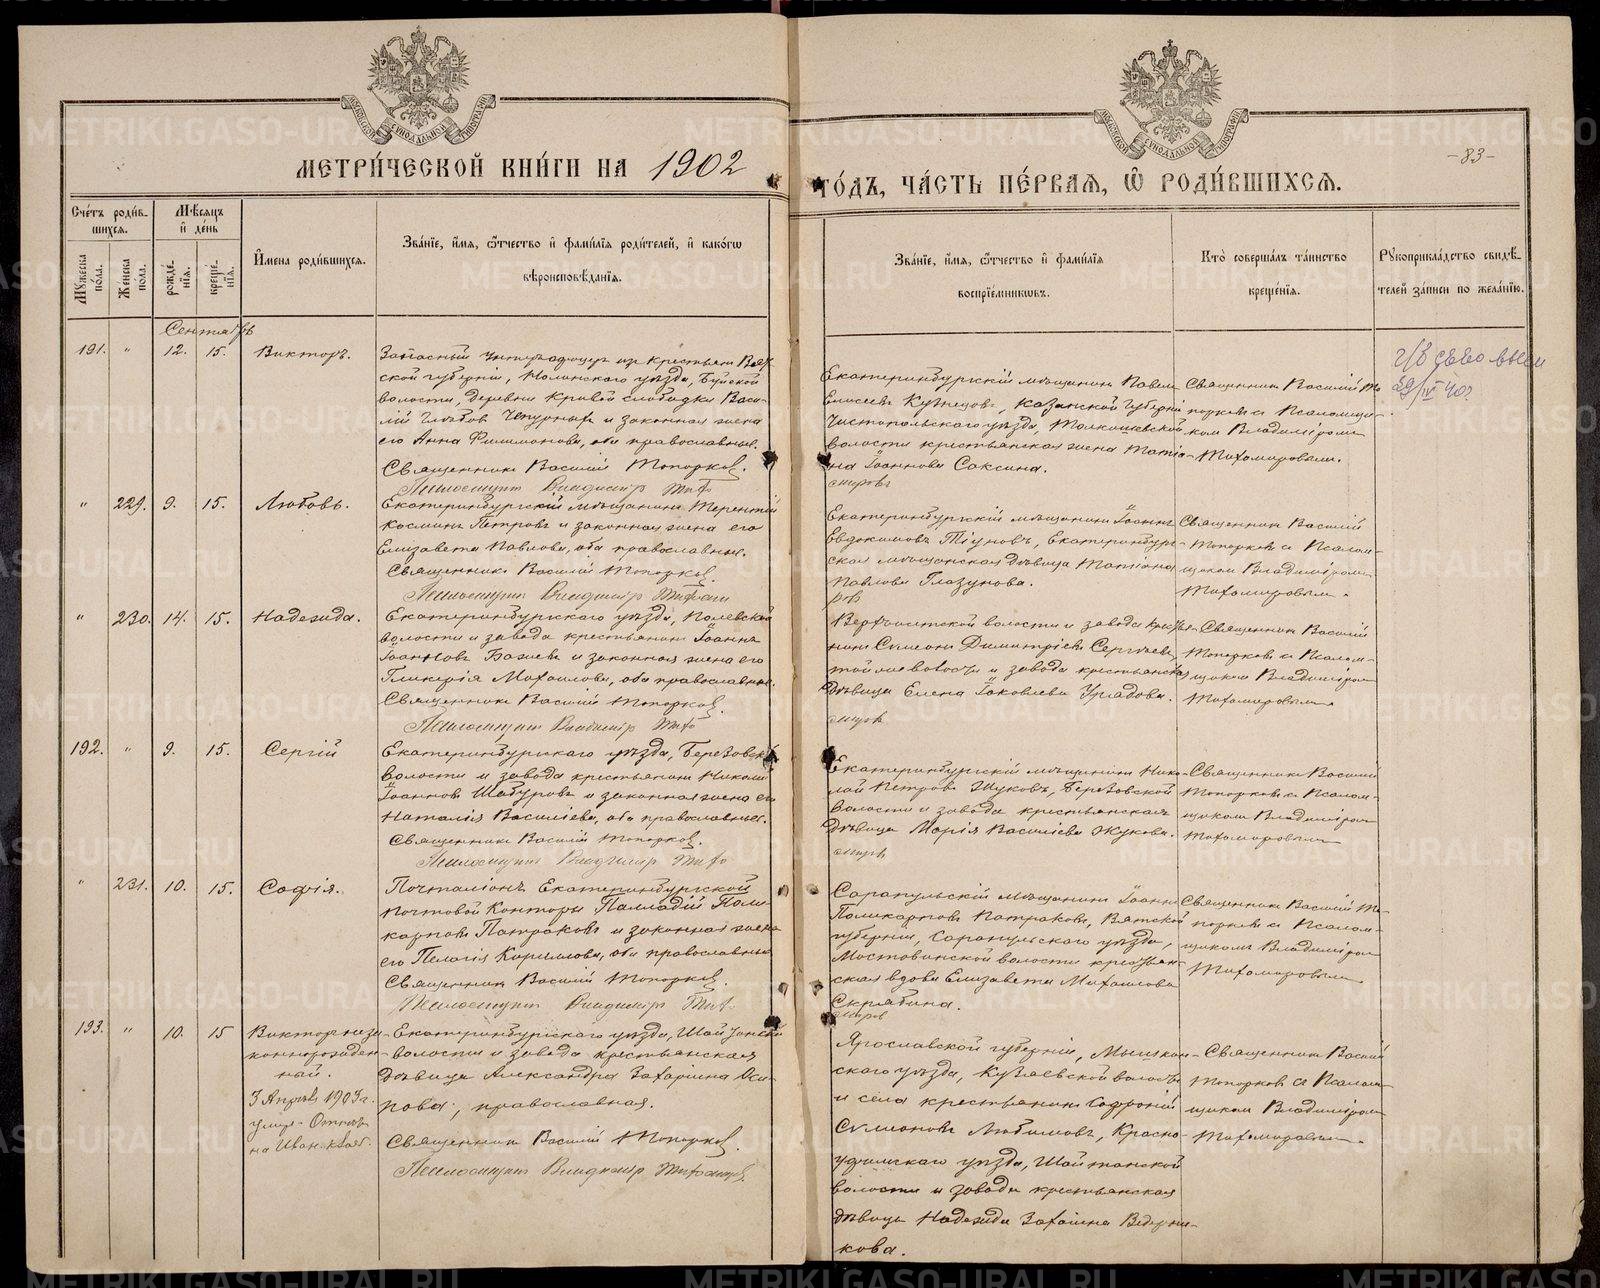 МЕТРИ́ЧЕСКОЙ КНИ́ГИ НА 1902
ГО́ДЪ, ЧА́СТЬ ПЕ́РВАѦ, Ѡ҆ РОДИ́ВШИХСѦ.
-83-
Сче́тъ роди́в-
шихсѧ.
Мꙋжеска
по́ла.
Же́нска
пола.
Мѣ́сѧцъ
и҆ де́нь
рожде́-
нїѧ.
креще́-
нїѧ.
И҆́мена роди́вшихсѧ.
Зва́нїе, и҆́мѧ, ѻ҆́тчество и҆ фами́лїѧ роди́телей, и҆ како́гѡ
вѣроисповѣ́данїѧ.
Зва́нїе, и҆́мѧ, ѻ҆́тчество и҆ фами́лїѧ
воспрїе́мникѡвъ.
Кто̀ соверша́лъ та́инство
креще́нїѧ.
Рꙋкоприкла́дство свидѣ́-
телей за́писи по жела́нїю.
Сентябрь
191. " 12. 15. Викторъ.
Запасный унтеръ-офицеръ изъ крестьянъ Вят-
ской губерніи, Нолинскаго уѣзда, Буйской
волости, деревни Кривой слободки Васи-
лій Глѣбовъ Чепурныхъ и законная жена
его Анна Филимонова, оба православные.
Священникъ Василій Топорковъ.
Псаломщикъ Владиміръ Тихо
Екатеринбургскій мѣщанинъ Павелъ
Елисеевъ Кузнецовъ, Казанской губерніи
Чистопольскаго уѣзда, Толкишевской
волости крестьянская жена Татіа-
на Іоаннова Саксина.
мировъ
Священникъ Василій То-
порковъ съ Псаломщи-
комъ Владиміромъ
Тихомировымъ.
" 229. 9. 15. Любовь.
Екатеринбургскій мѣщанинъ Терентій
Косминъ Петровъ и законная жена его
Елизавета Павлова, оба православные.
Священникъ Василій Топорковъ.
Псаломщикъ Владиміръ Тихоми
Екатеринбургскій мѣщанинъ Іоаннъ
Евдокимовъ Тіуновъ, Екатеринбург-
ская мѣщанская дѣвица Татіана
Павлова Глазунова.
ровъ
Священникъ Василій
Топорковъ съ Псалом-
щикомъ Владиміромъ
Тихомировымъ.
" 230. 14. 15. Надежда.
Екатеринбургскаго уѣзда, Полевской
волости и завода крестьянинъ Іоаннъ
Іоанновъ Базуевъ и законная жена его
Гликерія Михаилова, оба православные.
Священникъ Василій Топорковъ.
Псаломщикъ Владиміръ Тихо
волости и завода кресть-
нинъ Симеонъ Димитріевъ Сергѣевъ,
той же волости и завода крестьянская
дѣвица Елена Іаковлева Уладова.
мировъ
Священникъ Василій
Топорковъ съ Псалом-
щикомъ Владиміромъ
Тихомировымъ
192. " 9. 15. Сергій
Екатеринбургскаго уѣзда, Березовской
волости и завода крестьянинъ Николай
Іоанновъ Шабуровъ и законная жена его
Наталія Василіева, оба православные.
Священникъ Василій Топорковъ.
Псаломщикъ Владиміръ Тихо
Екатеринбургскій мѣщанинъ Нико-
лай Петровъ Жуковъ, Березовской
волости и завода крестьянская
дѣвица Марія Василіева Жукова.
мировъ
Священникъ Василій
Топорковъ съ Псалом-
щикомъ Владиміромъ
Тихомировымъ
" 231. 10. 15. Софія.
Почталіонъ Екатеринбургской
почтовой Конторы Палладій Поли-
карповъ Патраковъ и законная жена
его Пелагія Кириллова, оба православные
Священникъ Василій Топорковъ.
Псаломщикъ Владиміръ Тихо
Сарапульскій мѣщанинъ Іоаннъ
Поликарповъ Патраковъ, Вятской
губерніи, Сарапульскаго уѣзда,
Мостовинской волости крестьян-
ская вдова Елизавета Михаилова
Скрябина.
мировъ
Священникъ Василій То-
порковъ съ Псалом-
щикомъ Владиміромъ
Тихомировымъ
193. " 10. 15 Викторъ неза-
коннорожден-
ный.
3 Апрѣля 1903 г.
Екатеринбургскаго уѣзда, Шайтанской
волости и завода крестьянская
дѣвица Александра Захаріина Оси-
пова, православная.
Священникъ Василій Топорковъ.
Псаломщикъ Владиміръ Тихомировъ.
Ярославской губерніи, Мышкин-
скаго уѣзда, волости
и села крестьянинъ Софроній
Симеоновъ Любимовъ, Красно-
уфимскаго уѣзда, Шайтанской
волости и завода крестьянская
дѣвица Надежда Захаріина Ведерни-
кова.
Священникъ Василій
Топорковъ съ Псалом-
щикомъ Владиміромъ
Тихомировымъ.